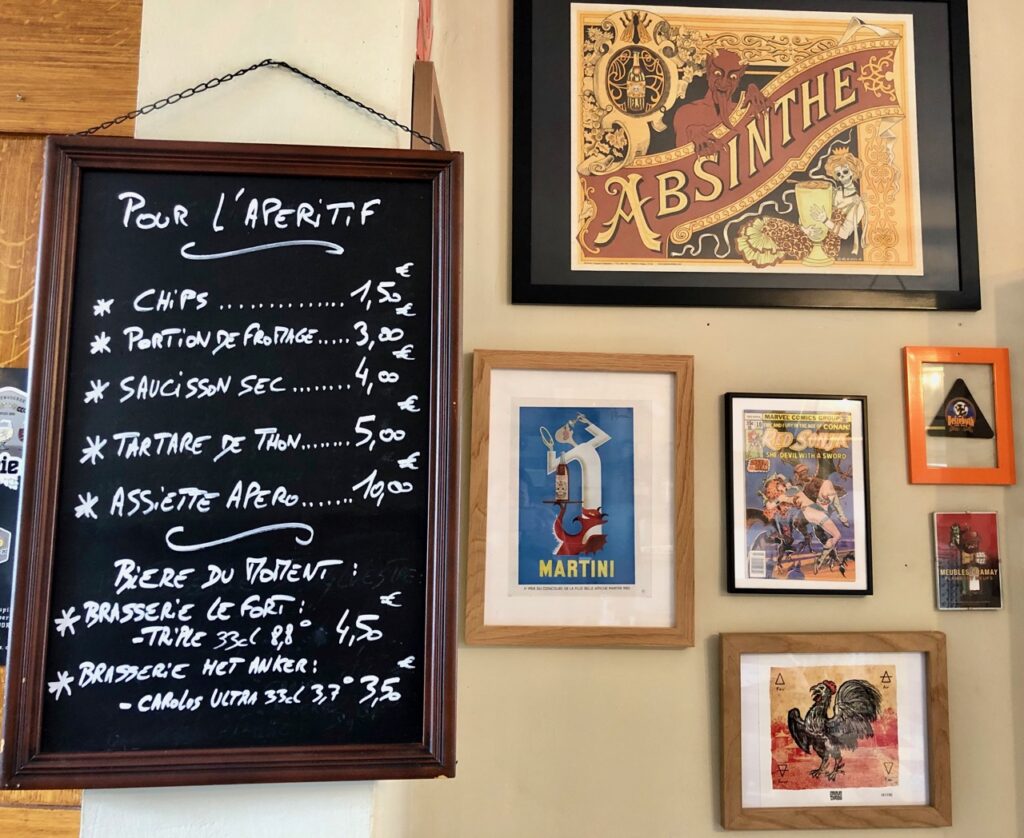 POUR L'APERITIF
* CHIPS .............. 1,50 €
* PORTION DE FROMAGE..... 3,00 €
* SAUCISSON SEC........ 4,00 €
* TARTARE DE THON....... 5,00 €
* ASSIETTE APERO....... 10,00 €
BIERE DU MOMENT :
* BRASSERIE LE FORT :
- TRIPLE 33cl 8,8° 4,50 €
* BRASSERIE HET ANKER :
- CAROLUS ULTRA 33cl 3,7° 3,50 €
ABSINTHE
MARTINI
MARVEL COMICS GROUP
RED SONJA
SHE-DEVIL WITH A SWORD
MEUBLES